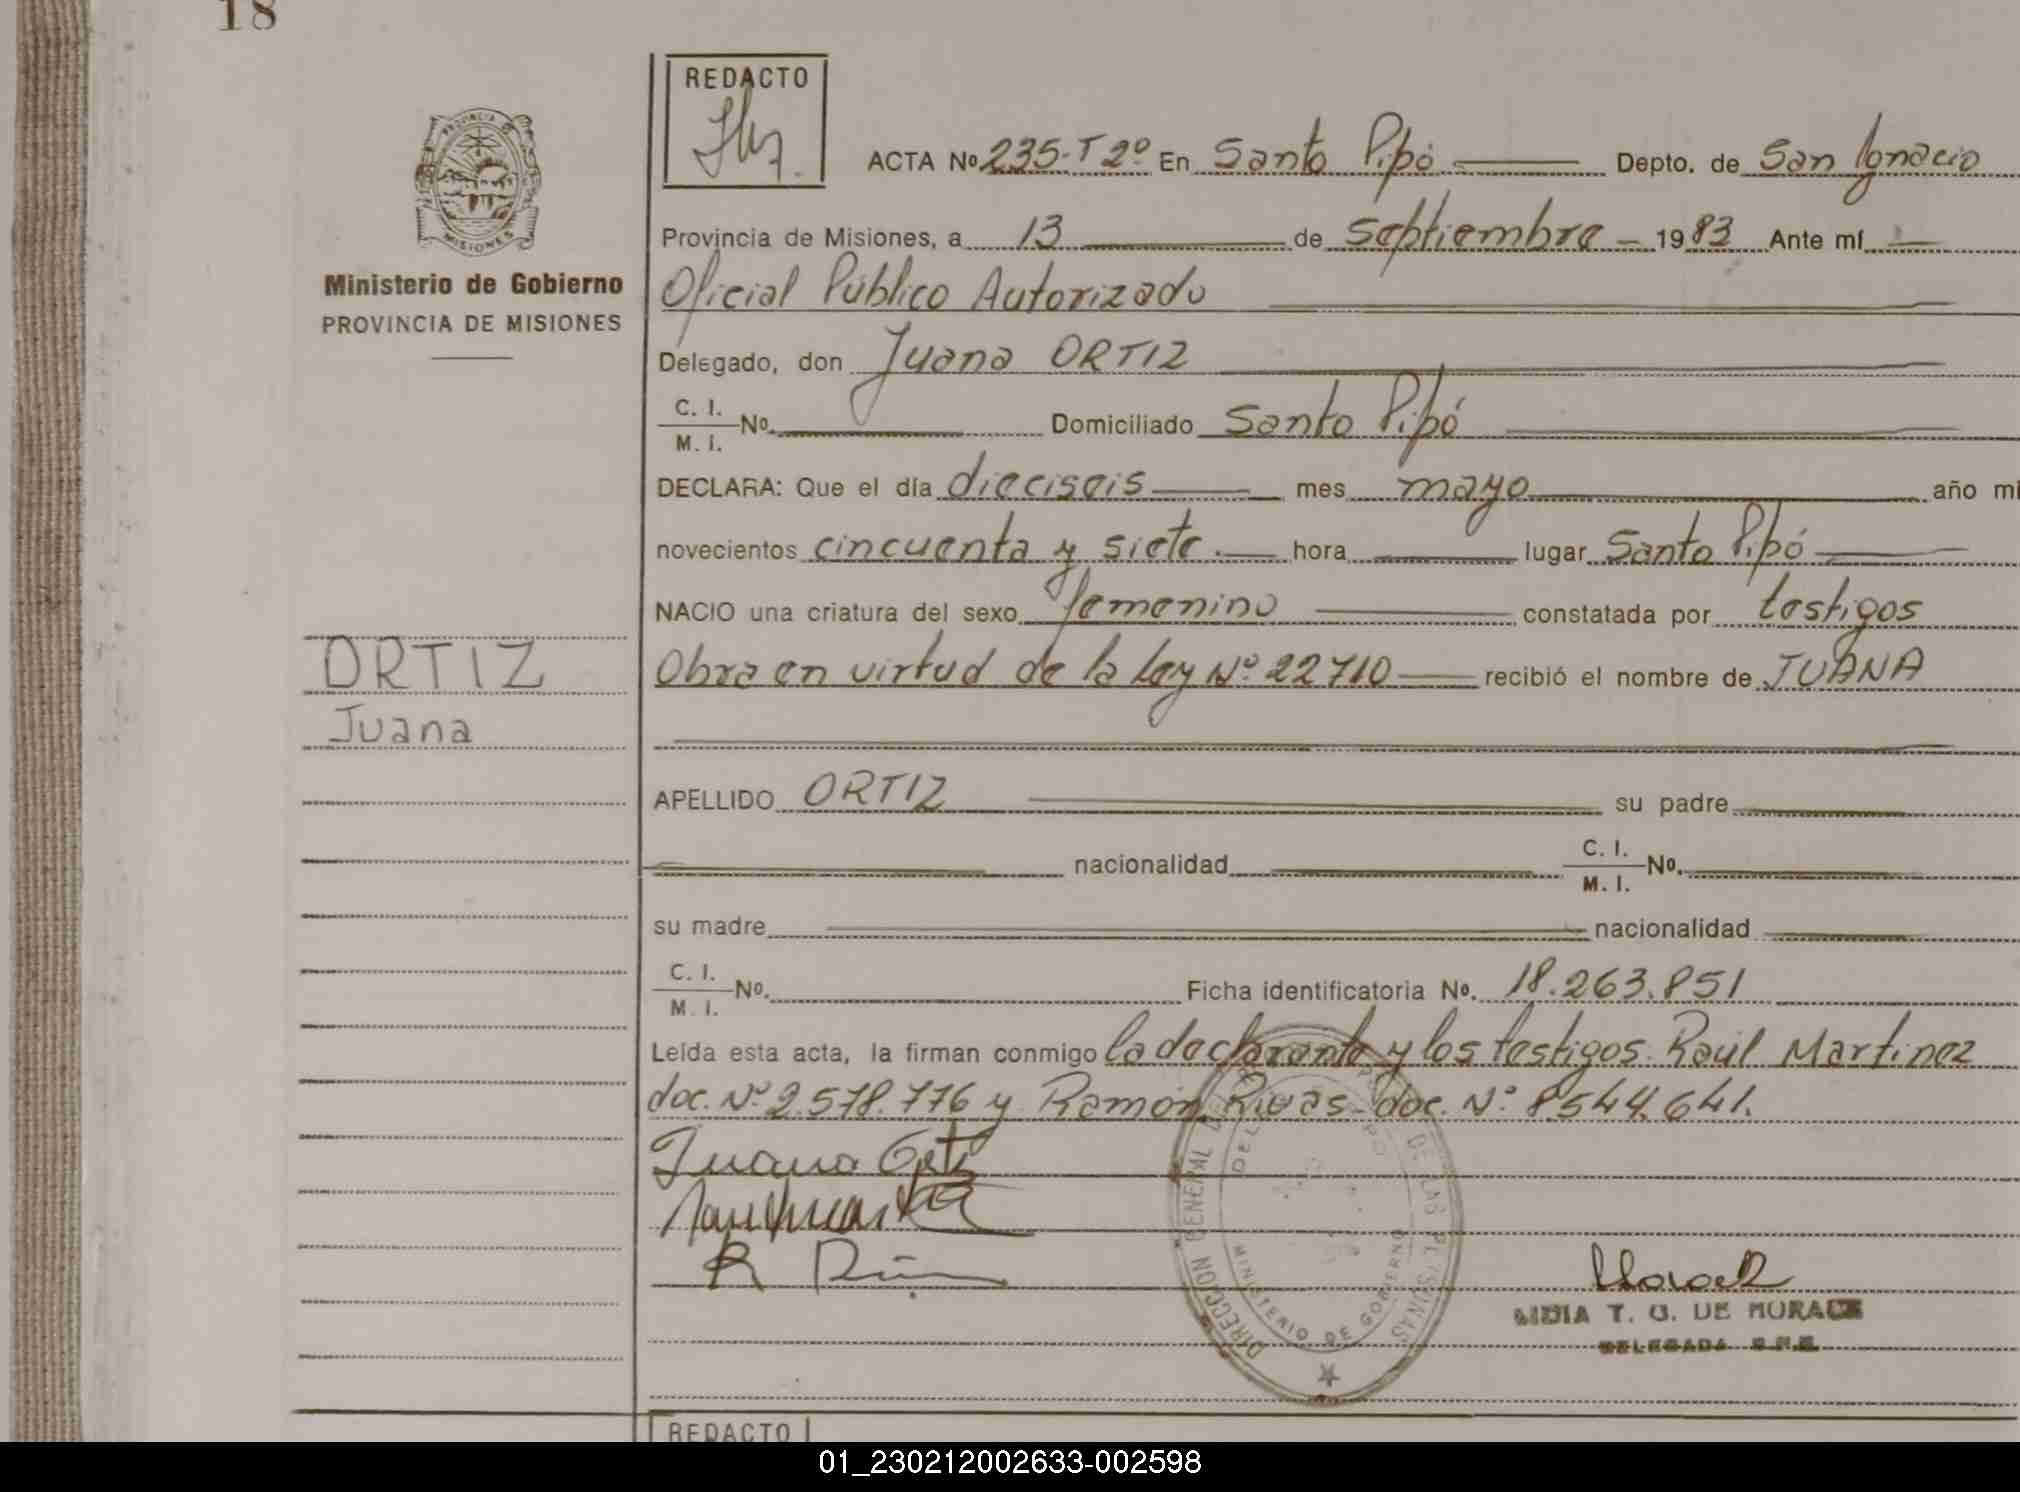 18
REDACTO
PROVINCIA DE
MISIONES
Ministerio de Gobierno
PROVINCIA DE MISIONES
ACTA Nº 235-T 2º En Santo Pipó Depto. de San Ignacio
Provincia de Misiones, a 13 de septiembre - 1983 Ante mí
Oficial Público Autorizado
Delegado, don Juana ORTIZ
C. I. M. I. Nº. Domiciliado Santo Pipó
DECLARA: Que el día dieciseis mes mayo año mi
novecientos cincuenta y siete. hora lugar Santo Pipó
NACIO una criatura del sexo femenino constatada por testigos
Obra en virtud de la ley Nº 22710 recibió el nombre de JUANA
ORTIZ
Juana
APELLIDO ORTIZ su padre
nacionalidad C. I. M. I. Nº.
su madre nacionalidad
C. I. M. I. Nº. Ficha identificatoria Nº. 18.263.851
Leída esta acta, la firman conmigo la declarante y los testigos Raúl Martinez
doc. Nº 2.578.776 y Ramón Rivas doc. Nº 8544.641.
Juana Ortiz
DIRECCION GENERAL DE LAS PERSONAS
MINISTERIO DE GOBIERNO
T. G. DE MORALES
DELEGADA
REDACTO
01_230212002633-002598